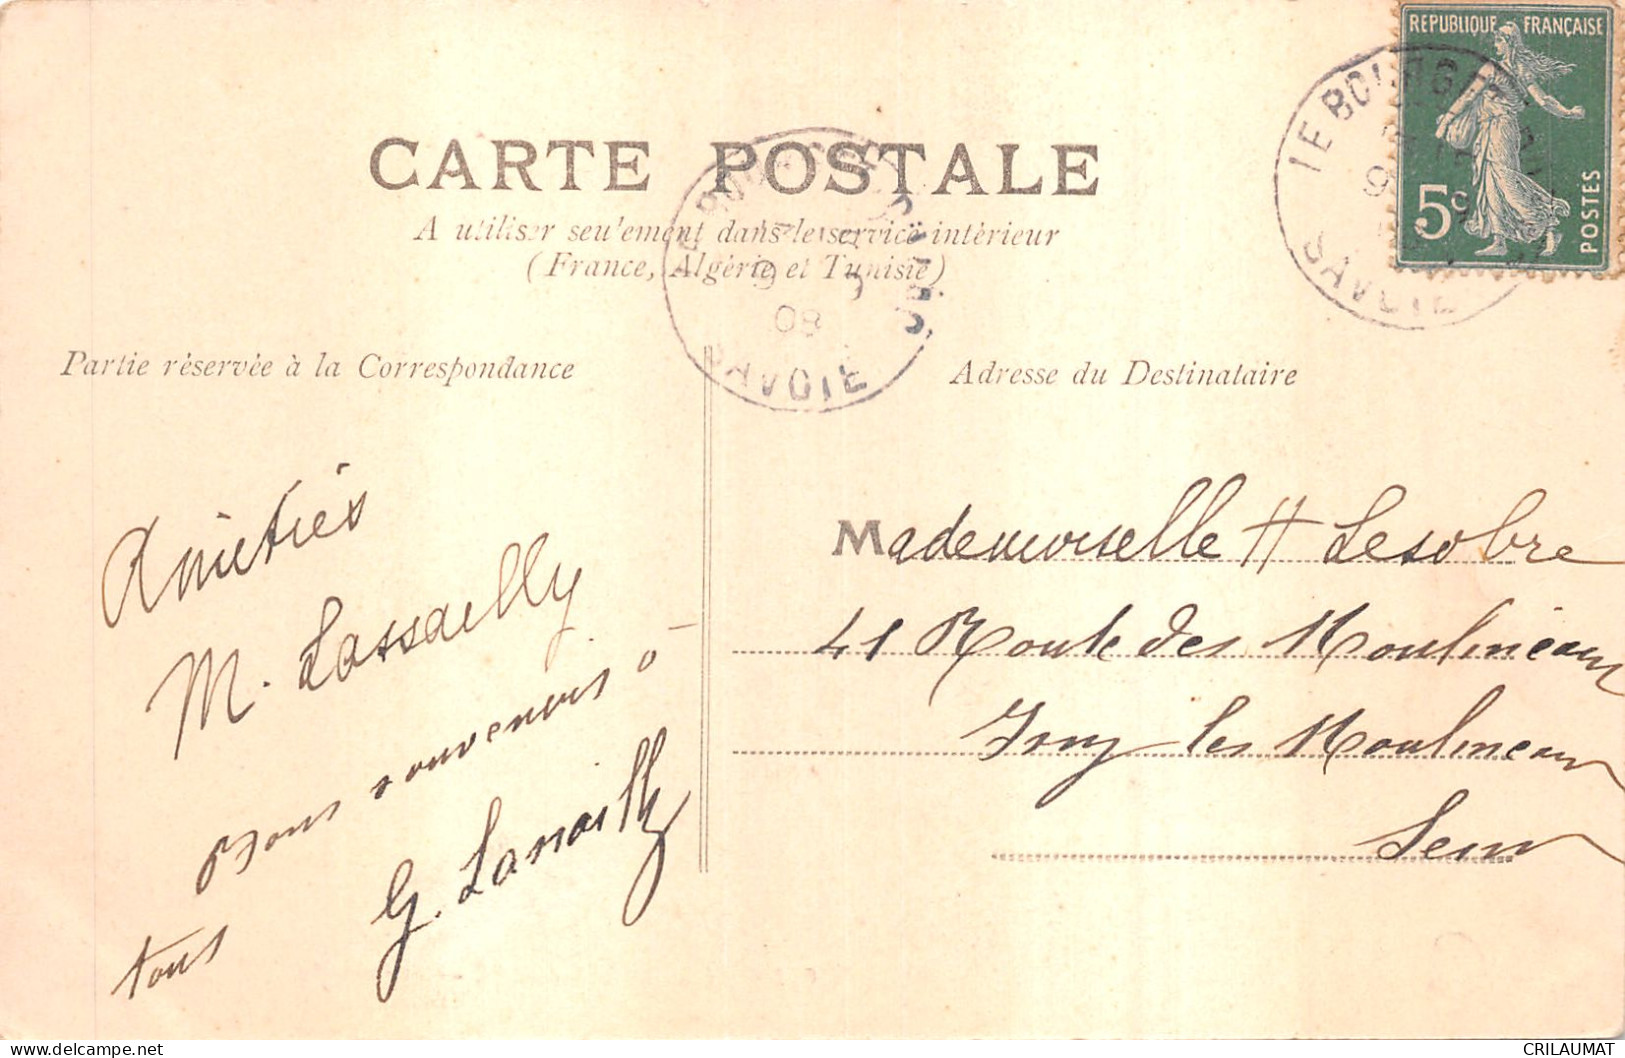 REPUBLIQUE FRANÇAISE
5c
POSTES
LE BOURGET
SAVOIE
CARTE POSTALE
A utiliser seulement dans le service intérieur
(France, Algérie et Tunisie)
9
08
SAVOIE
Partie réservée à la Correspondance
Adresse du Destinataire
Amitiés
M. Lassailly
Bons souvenirs à
tous
G. Lassailly
Mademoiselle H Lesobre
41 Route des Moulineaux
Issy les Moulineaux
Seine
CRILAUMAT